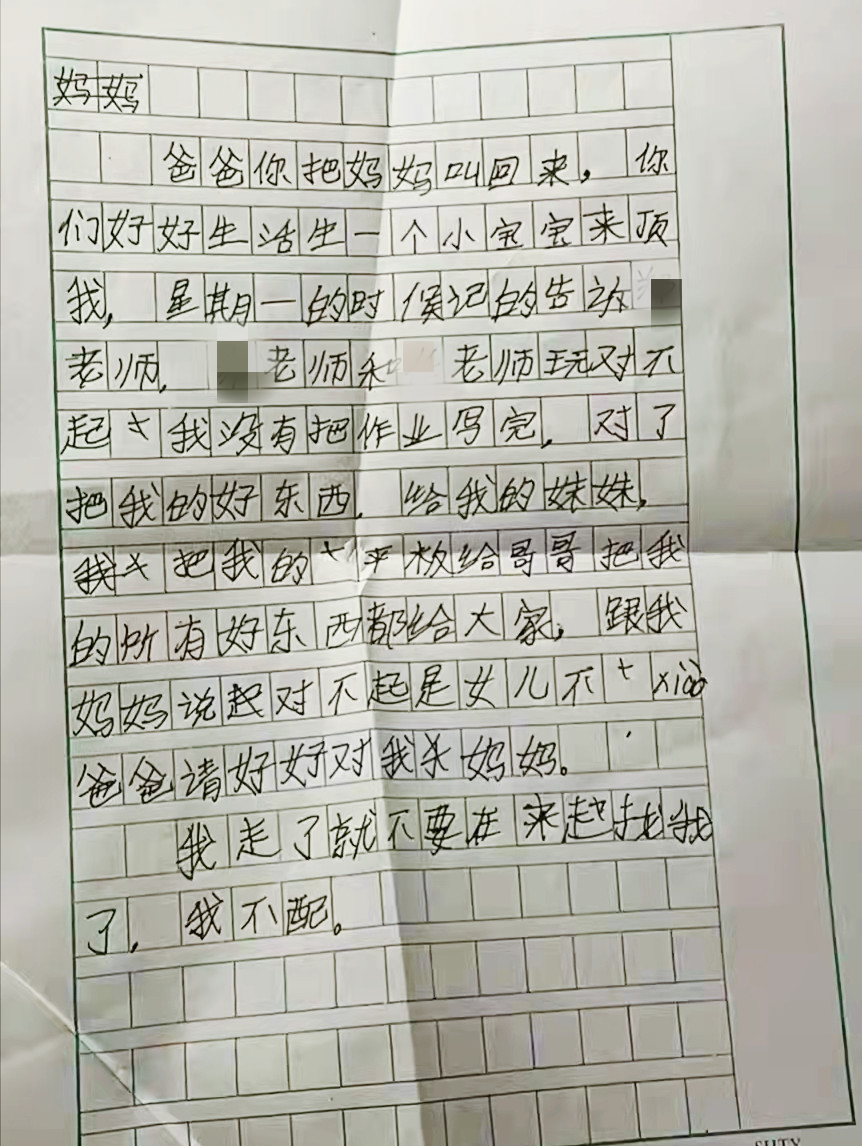 妈妈
爸爸你把妈妈叫回来，你
们好好生活生一个小宝宝来顶
我，星期一的时候记的告诉
老师，老师和老师玩对不
起我没有把作业写完，对了
把我的好东西，给我的妹妹，
我把我的平板给哥哥把我
的所有好东西都给大家，跟我
妈妈说起对不起是女儿不
爸爸请好好对我妈妈。
我走了就不要在来起找我
了，我不配。